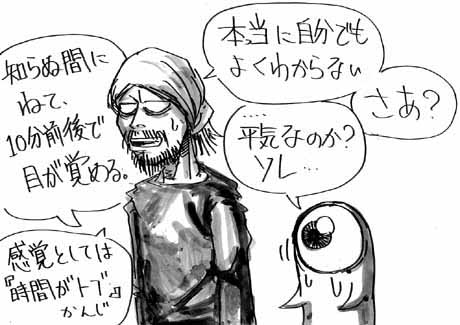 本当に自分でも
よくわからない
さあ?
‥‥
平気なのか?
ソレ…
知らぬ間に
ねて、
10分前後で
目が覚める。
感覚としては
『時間がトブ』
かんじ